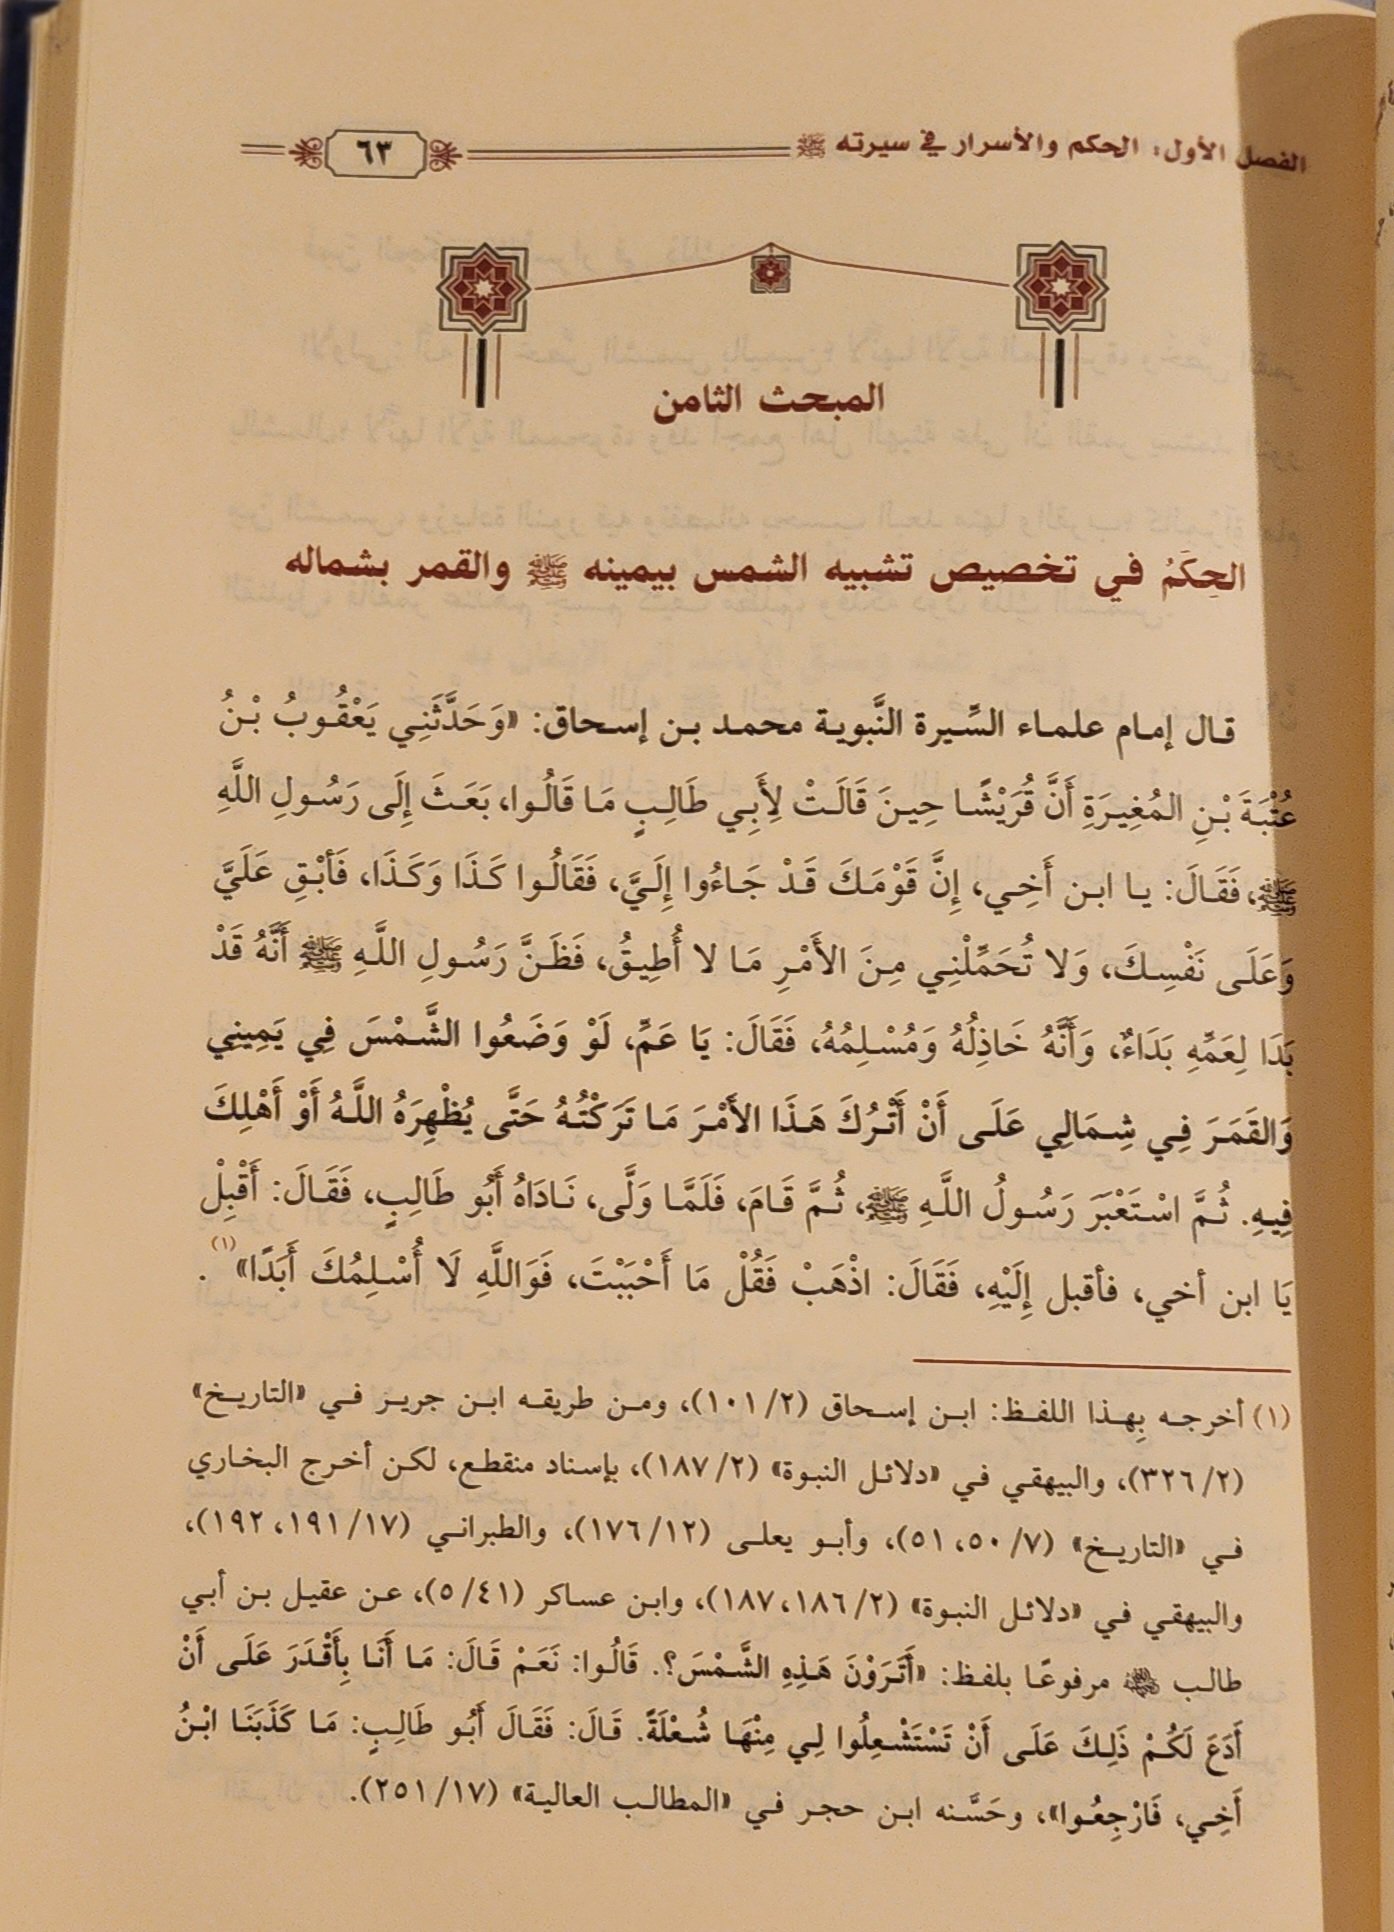 الفصل الأول: الحكم والأسرار في سيرته ﷺ
٦٣
المبحث الثامن
الحِكَمُ في تخصيص تشبيه الشمس بيمينه ﷺ والقمر بشماله
قال إمام علماء السِّيرة النَّبوية محمد بن إسحاق: «وَحَدَّثَنِي يَعْقُوبُ بْنُ
عُتْبَةَ بْنِ المُغِيرَةِ أَنَّ قُرَيْشًا حِينَ قَالَتْ لِأَبِي طَالِبٍ مَا قَالُوا، بَعَثَ إِلَى رَسُولِ اللَّهِ
ﷺ، فَقَالَ: يا ابن أَخِي، إِنَّ قَوْمَكَ قَدْ جَاءُوا إِلَيَّ، فَقَالُوا كَذَا وَكَذَا، فَأبْقِ عَلَيَّ
وَعَلَى نَفْسِكَ، وَلا تُحَمِّلْنِي مِنَ الأَمْرِ مَا لا أُطِيقُ، فَظَنَّ رَسُولِ اللَّهِ ﷺ أَنَّهُ قَدْ
بَدَا لِعَمِّهِ بَدَاءٌ، وَأَنَّهُ خَاذِلُهُ وَمُسْلِمُهُ، فَقَالَ: يَا عَمِّ، لَوْ وَضَعُوا الشَّمْسَ فِي يَمِينِي
وَالقَمَرَ فِي شِمَالِي عَلَى أَنْ أَتْرُكَ هَذَا الأَمْرَ مَا تَرَكْتُهُ حَتَّى يُظْهِرَهُ اللَّهُ أَوْ أَهْلِكَ
فِيهِ. ثُمَّ اسْتَعْبَرَ رَسُولُ اللَّهِ ﷺ، ثُمَّ قَامَ، فَلَمَّا وَلَّى، نَادَاهُ أَبُو طَالِبٍ، فَقَالَ: أَقْبِلْ
يَا ابن أخي، فأقبل إِلَيْهِ، فَقَالَ: اذْهَبْ فَقُلْ مَا أَحْبَبْتَ، فَوَاللَّهِ لَا أُسْلِمُكَ أَبَدًا»(١).
(١) أخرجه بِهذا اللفظ: ابن إسحاق (١٠١/٢)، ومن طريقه ابن جرير في «التاريخ»
(٣٢٦/٢)، والبيهقي في «دلائل النبوة» (١٨٧/٢)، بإسناد منقطع، لكن أخرج البخاري
في «التاريخ» (٧/ ٥٠، ٥١)، وأبو يعلى (١٧٦/١٢)، والطبراني (١٧/ ١٩١، ١٩٢)،
والبيهقي في «دلائل النبوة» (٢/ ١٨٦، ١٨٧)، وابن عساكر (٥/٤١)، عن عقيل بن أبي
طالب ﵁ مرفوعًا بلفظ: «أَتَرَوْنَ هَذِهِ الشَّمْسَ؟. قَالُوا: نَعَمْ قَالَ: مَا أَنَا بِأَقْدَرَ عَلَى أَنْ
أَدَعَ لَكُمْ ذَلِكَ عَلَى أَنْ تَسْتَشْعِلُوا لِي مِنْهَا شُعْلَةً. قَالَ: فَقَالَ أَبُو طَالِبٍ: مَا كَذَبَنَا ابْنُ
أَخِي، فَارْجِعُوا»، وحَسَّنه ابن حجر في «المطالب العالية» (٢٥١/١٧).